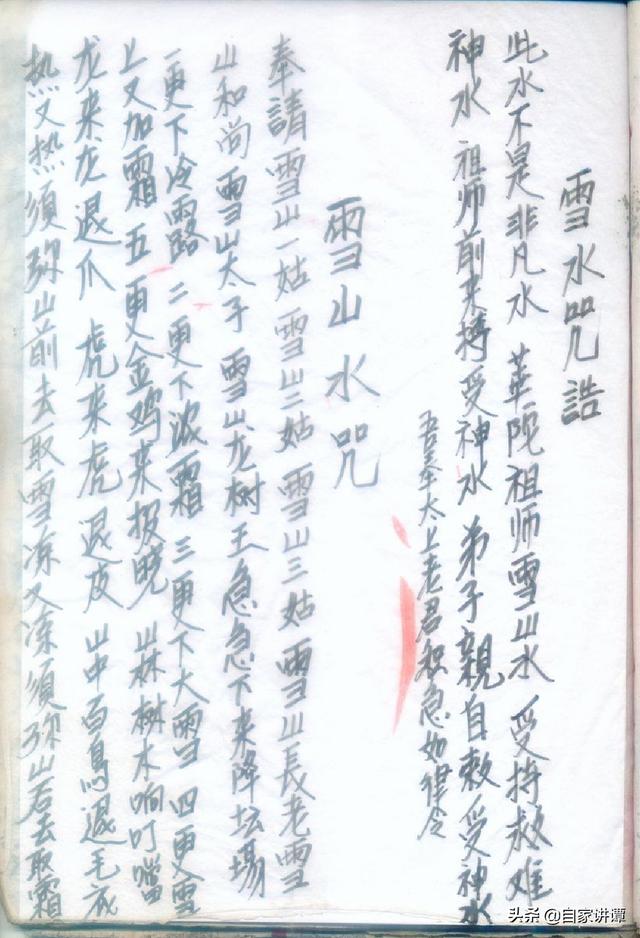 雪水咒誥
此水不是非凡水 華陀祖师雪山水 受持救难
神水 祖师前来持受神水 弟子親自敕受神水
吾奉太上老君积急如律令
雪山水咒
奉請雪山一姑 雪山二姑 雪山三姑 雪山長老雪
山和尚 雪山太子 雪山龙树王急急下来降坛場
一更下冷露 二更下浓霜 三更下大雪 四更雪
上又加霜 五更金鸡来报晓 山林树木响叮噹
龙来龙退爪 虎来虎退皮 山中百鳥退毛衣
热又热須弥山前去取雪 冻又冻須弥山后去取霜
头条 @自家讲蕈